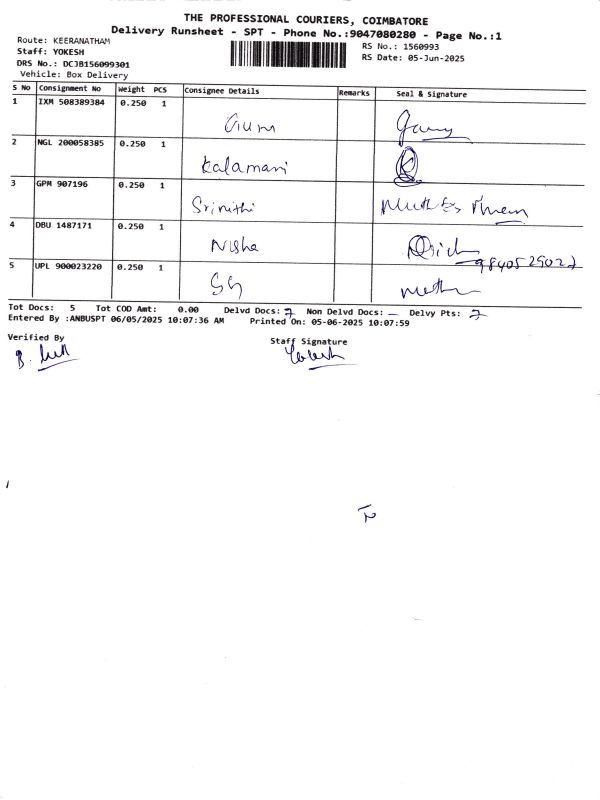 THE PROFESSIONAL COURIERS, COIMBATORE
Delivery Runsheet - SPT - Phone No.:9047080280 - Page No.:1
Route: KEERANATHAM
Staff: YOKESH
DRS No.: DCJB156099301
Vehicle: Box Delivery
RS No.: 1560993
RS Date: 05-Jun-2025
S No Consignment No Weight PCS Consignee Details Remarks Seal & Signature
1 IXM 508389384 0.250 1
2 NGL 200058385 0.250 1 Kalamani
3 GPM 907196 0.250 1 Srinithi
4 DBU 1487171 0.250 1 Nisha
5 UPL 900023220 0.250 1
Tot Docs: 5 Tot COD Amt: 0.00 Delvd Docs: Non Delvd Docs: — Delvy Pts:
Entered By :ANBUSPT 06/05/2025 10:07:36 AM Printed On: 05-06-2025 10:07:59
Verified By Staff Signature